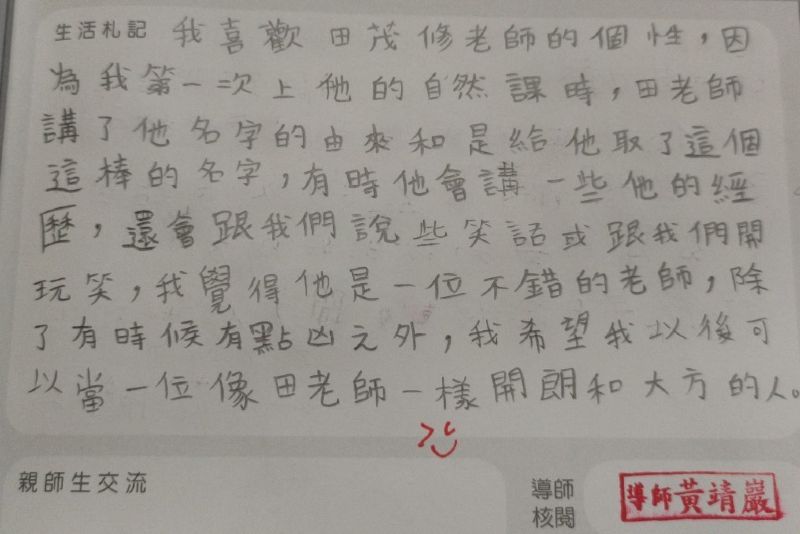 生活札記 我喜歡田茂修老師的個性，因
為我第一次上他的自然課時，田老師
講了他名字的由來和是給他取了這個
這棒的名字，有時他會講一些他的經
歷，還會跟我們說些笑話或跟我們開
玩笑，我覺得他是一位不錯的老師，除
了有時候有點凶之外，我希望我以後可
以當一位像田老師一樣開朗和大方的人。
親師生交流
導師
核閱
導師黃靖巖